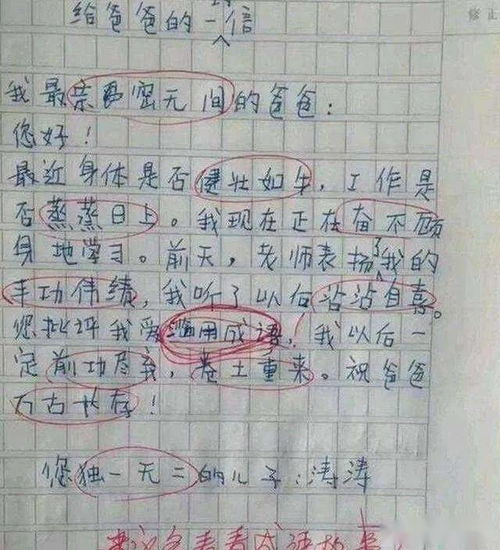 给爸爸的一封信
我最亲密无间的爸爸：
您好！
最近身体是否健壮如牛，工作是
否蒸蒸日上。我现在正在奋不顾
身地学习。前天，老师表扬了我的
丰功伟绩，我听了以后沾沾自喜。
您批评我爱滥用成语，我以后一
定前功尽弃，卷土重来。祝爸爸
万古长存！
您独一无二的儿子：涛涛
建议多看看成语故事